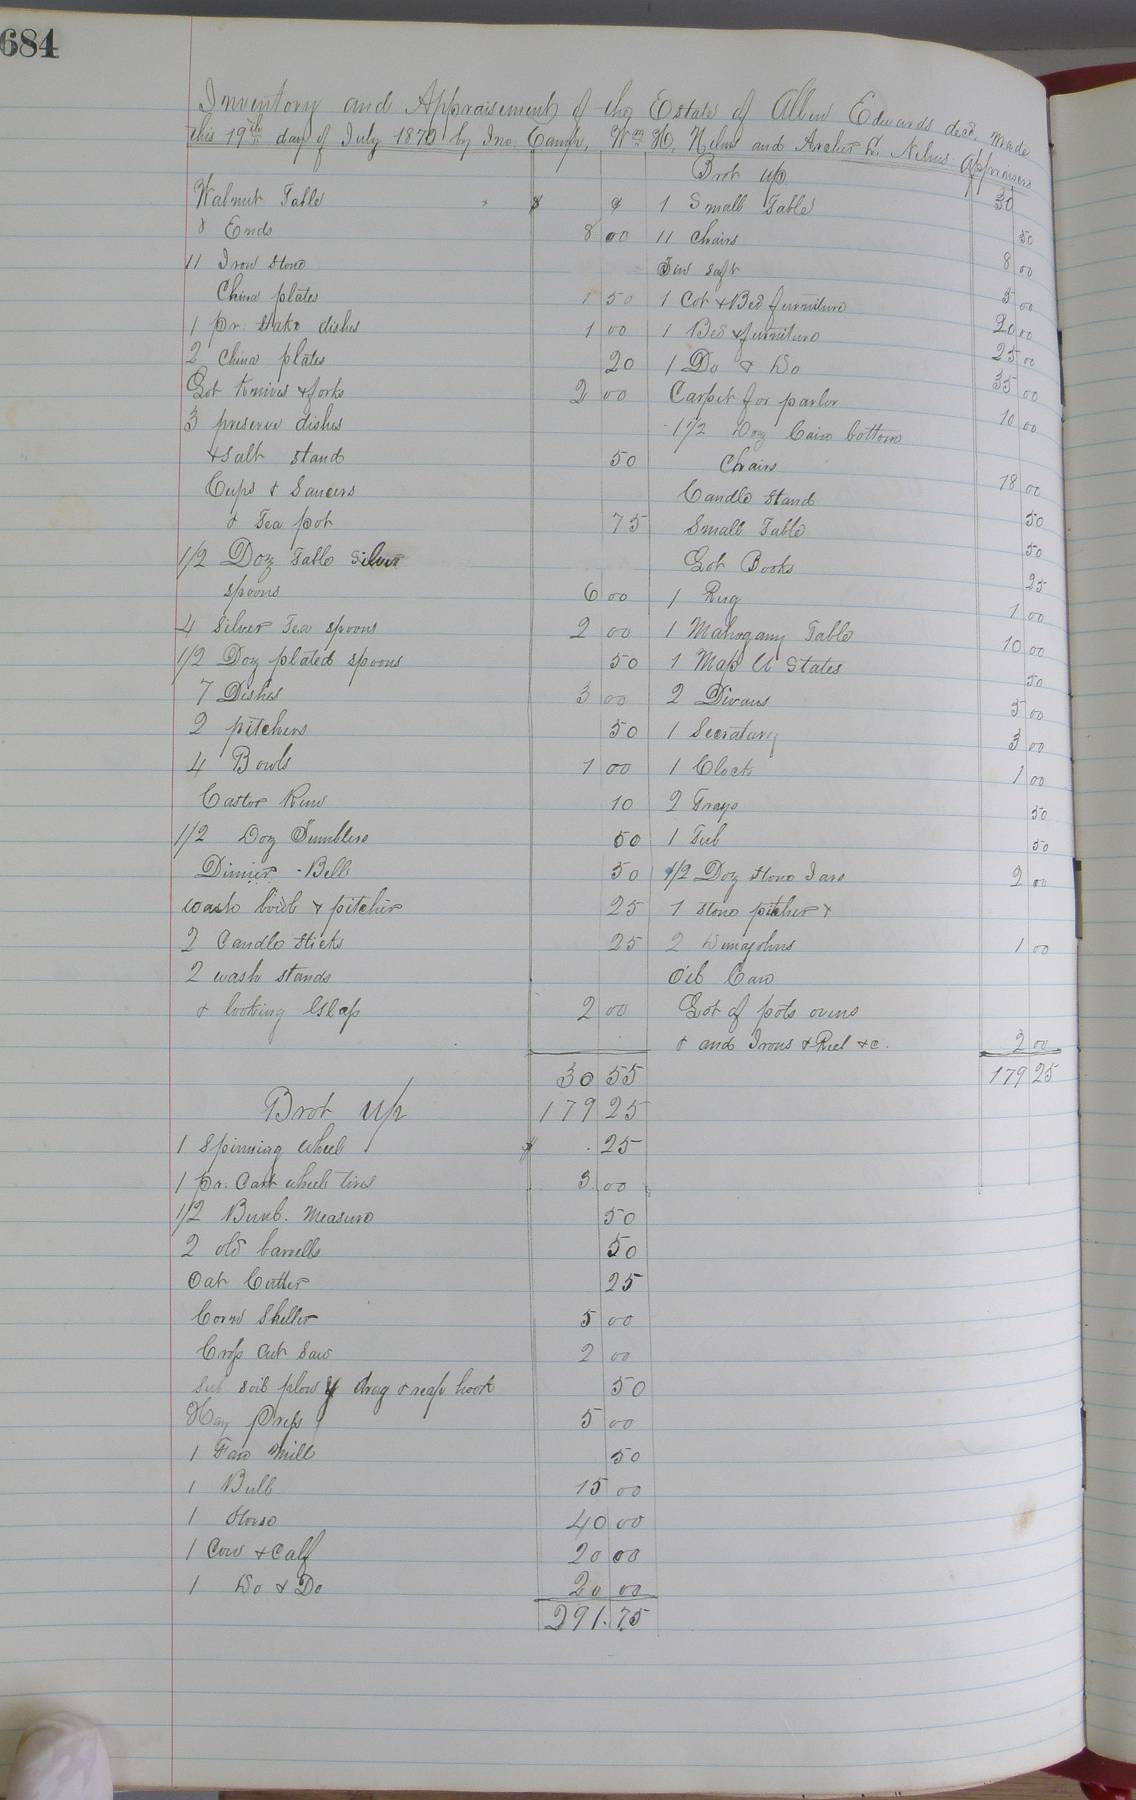 684
Inventory and Appraisement of the Estate of Allen Edwards decd. made
this 19th day of July 1870 by Jno. Camp, Wm H. Nelms and Archer L. Nelms Appraisers
Walnut Table $
& Ends 8 00
11 Iron Stone
China plates 1 50
1 pr. Stake dishes 1 00
2 China plates 20
Lot Knives & forks 2 00
3 preserve dishes
& salt stand 50
Cups & Saucers
& Tea pot 75
1/2 Doz Table Silver
spoons 6 00
4 Silver Tea spoons 2 00
1/2 Doz plated spoons 50
7 Dishes 3 00
2 pitchers 50
4 Bowls 1 00
Castor 10
1/2 Doz Tumblers 50
Dinner - Bell 50
wash bowl & pitcher 25
2 Candle Sticks 25
2 wash stands
& looking Glass 2 00
30 55
Brot up 30
1 Small Table 50
11 Chairs 8 00
Tin safe 5 00
1 Cot & Bed furniture 20 00
1 Bed & furniture 25 00
1 Do & Do 35 00
Carpet for parlor 10 00
1 1/2 Doz Cain bottom
Chairs 18 00
Candle Stand 50
Small Table 50
Lot Books 25
1 Rug 1 00
1 Mahogany Table 10 00
1 Map U States 50
2 Divans 5 00
1 Secratary 3 00
1 Clock 1 00
2 Trays 50
1 Tub 50
1/2 Doz Stone Jars 2 00
1 Stone pitcher &
2 Dimajohns 1 00
Oil Can
Lot of pots ovens
& and Irons & Reel &c. 2 00
179 25
Brot up 179 25
1 Spinning wheel $ .25
1 pr. Cart wheel tires 3 00
1/2 Bush. Measure 50
2 old barrells 50
Oat Cutter 25
Corn Sheller 5 00
Cross Cut Saw 2 00
Sub soil plow drag & reap hook 50
Hay Press 5 00
1 Fan Mill 50
1 Bull 15 00
1 Horse 40 00
1 Cow & Calf 20 00
1 Do & Do 20 00
291.75